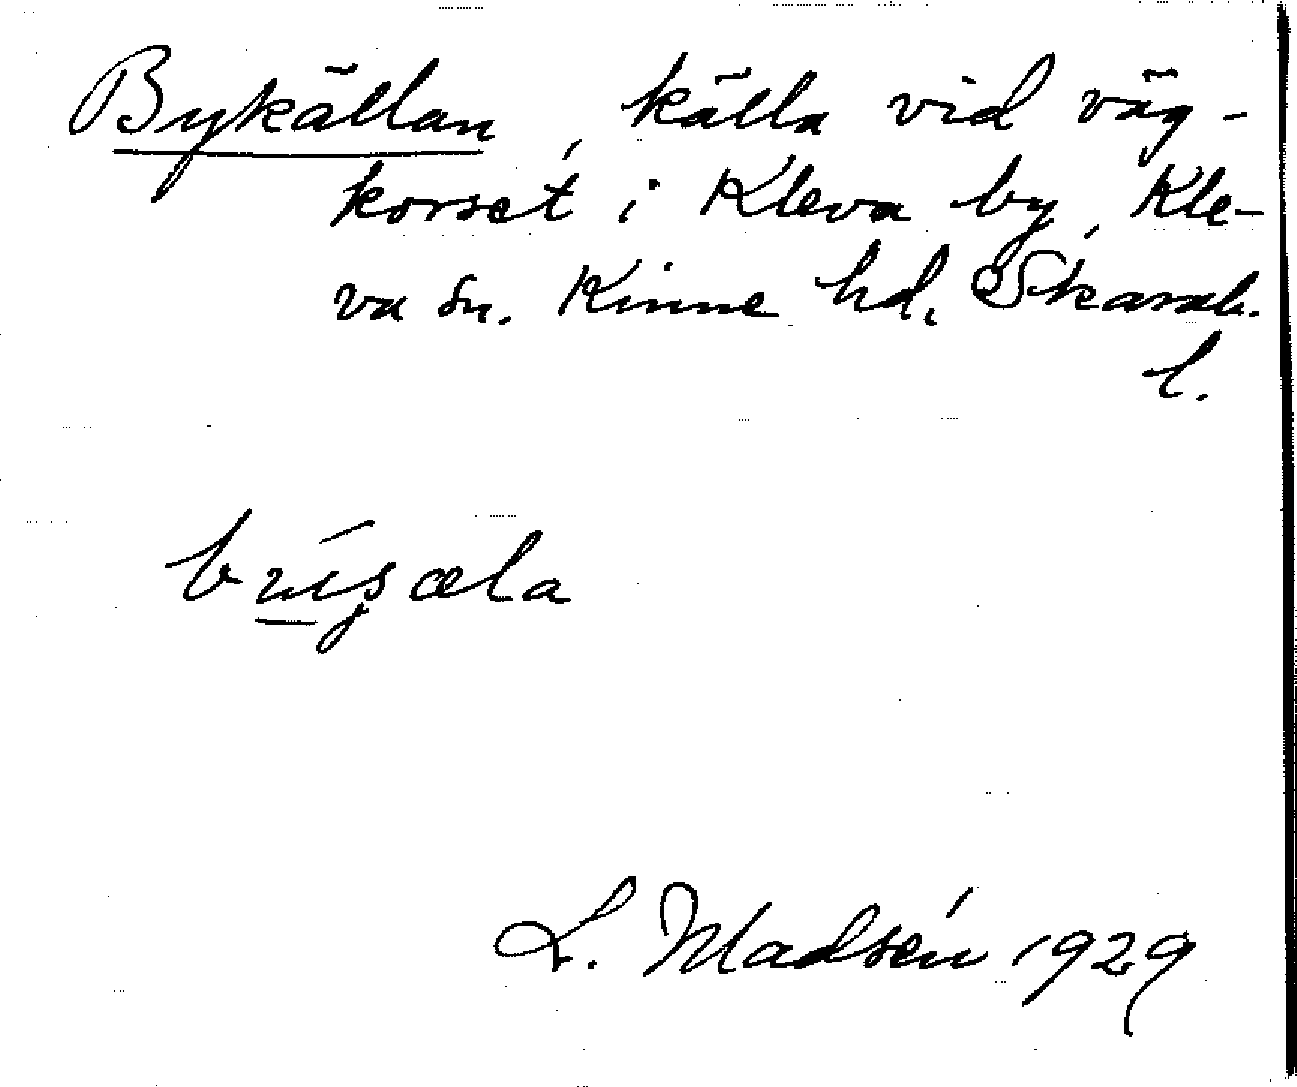 Bykällan, källa vid väg-
korset i Kleva by, Kle-
va sn. Kinne hd, Skarab.
l.
L. Madsén 1929